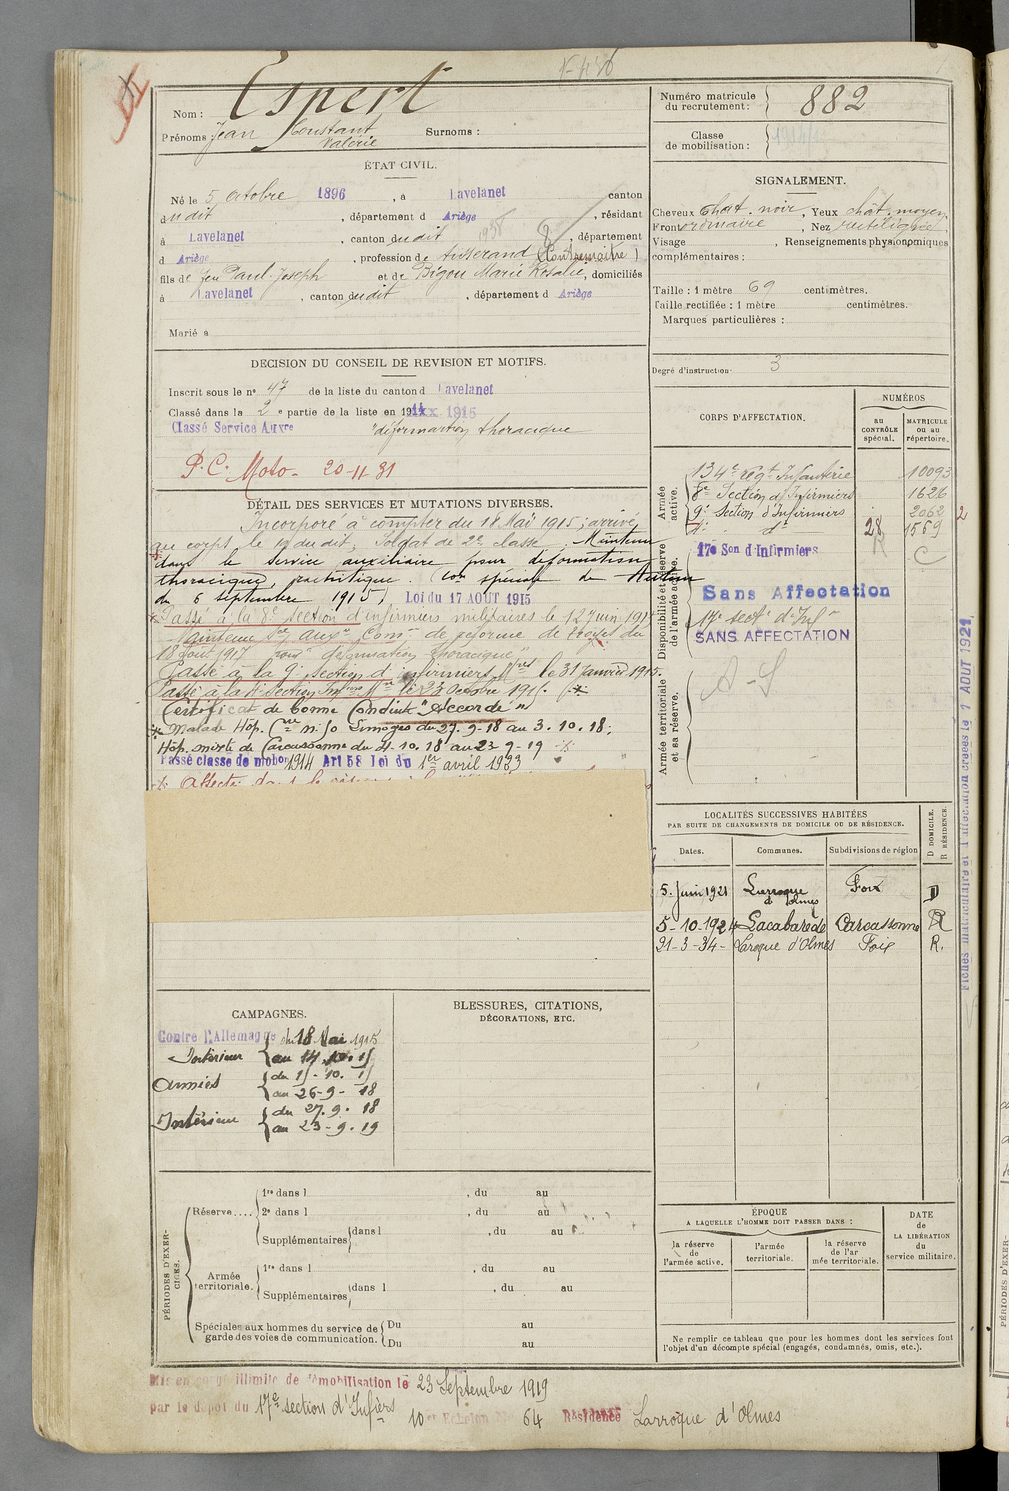 Nom : Espert
Prénoms : Jean Constant Surnoms :
Valérie
Numéro matricule du recrutement : 882
Classe de mobilisation :
ÉTAT CIVIL.
Né le 5 octobre 1896, à Lavelanet canton
dudit, département d Ariège, résidant
à Lavelanet, canton dudit, département
d Ariège, profession de tisserand (Contremaitre)
fils de feu Paul-Joseph et de Bigou Marie Rosalie, domiciliés
à Lavelanet, canton dudit, département d Ariège
Marié à
SIGNALEMENT.
Cheveux chat. noir, Yeux chât. moyen,
Front ordinaire, Nez rectiligne,
Visage , Renseignements physionomiques
complémentaires :
Taille : 1 mètre 69 centimètres.
Taille rectifiée : 1 mètre centimètres.
Marques particulières :
Degré d'instruction. 3
DECISION DU CONSEIL DE REVISION ET MOTIFS.
Inscrit sous le n° 47 de la liste du canton d Lavelanet
Classé dans la 2e partie de la liste en 1915
Classé Service Auxre "déformation thoracique
P.C. Moto - 20-11-31
DÉTAIL DES SERVICES ET MUTATIONS DIVERSES.
Incorporé à compter du 18 Mai 1915 ; arrivé
au corps le 19 dudit, Soldat de 2e classe. Maintenu
dans le service auxiliaire pour déformation
thoracique, rachitique. (Con spéciale de Autun
du 6 septembre 1915) Loi du 17 AOUT 1915
Passé à la 8e section d'infirmiers militaires le 12 juin 1917
Maintenu Sce auxre Comon de réforme de Troyes du
18 Aout 1917 pour "déformation thoracique"
Passé à la 9e section d'infirmiers Mres le 31 janvier 1915
Passé à la section Infres Mres le 23 Octobre 191
Certificat de bonne Conduite "Accordé"
Malade Hôp. Limoges du 27-9-18 au 3.10.18 ;
Hôp. mixte de Carcassonne du 21.10.18 au 23-9-19
Passé classe de mobon 1914 Art 58 Loi du 1er avril 1923
CORPS D'AFFECTATION.
NUMÉROS
AU CONTRÔLE spécial.
MATRICULE ou au répertoire.
Armée active.
134e regt Infanterie 10093
8e Section d'Infirmiers 1626
9e Section d'Infirmiers 2062
do 28 1559
Disponibilité et réserve de l'armée active.
17e Son d'Infirmiers
Sans Affectation
17e secton d'Infr
SANS AFFECTATION
Armée territoriale et sa réserve.
A-S
LOCALITÉS SUCCESSIVES HABITÉES
PAR SUITE DE CHANGEMENTS DE DOMICILE OU DE RÉSIDENCE.
Dates. Communes. Subdivisions de région
D DOMICILE. R RÉSIDENCE.
5. Juin 1921 Larroque d'Olmes Foix D
5-10-1924 Lacabarède Carcassonne R
21-3-34- Laroque d'Olmes Foix R.
CAMPAGNES.
Contre l'Allemagne du 18 Mai 1915
Intérieur au 14.10.15
Armées du 15-10.15
au 26-9-18
Intérieur du 27.9.18
au 23-9.19
BLESSURES, CITATIONS,
DÉCORATIONS, ETC.
PÉRIODES D'EXERCICES.
Réserve.... 1re dans l , du au
2e dans l , du au
Supplémentaires dans l , du au
Armée territoriale. 1re dans l , du au
Supplémentaires dans l , du au
Spéciales aux hommes du service de garde des voies de communication. Du au
Du au
ÉPOQUE
A LAQUELLE L'HOMME DOIT PASSER DANS :
la réserve de l'armée active.
l'armée territoriale.
la réserve de l'armée territoriale.
DATE de LA LIBÉRATION du service militaire.
Ne remplir ce tableau que pour les hommes dont les services font
l'objet d'un décompte spécial (engagés, condamnés, omis, etc.).
Mis en congé illimité de démobilisation le 23 Septembre 1919
par le dépot du 17e section d'Infiers 10e Echelon No 64 Résidence Larroque d'Olmes